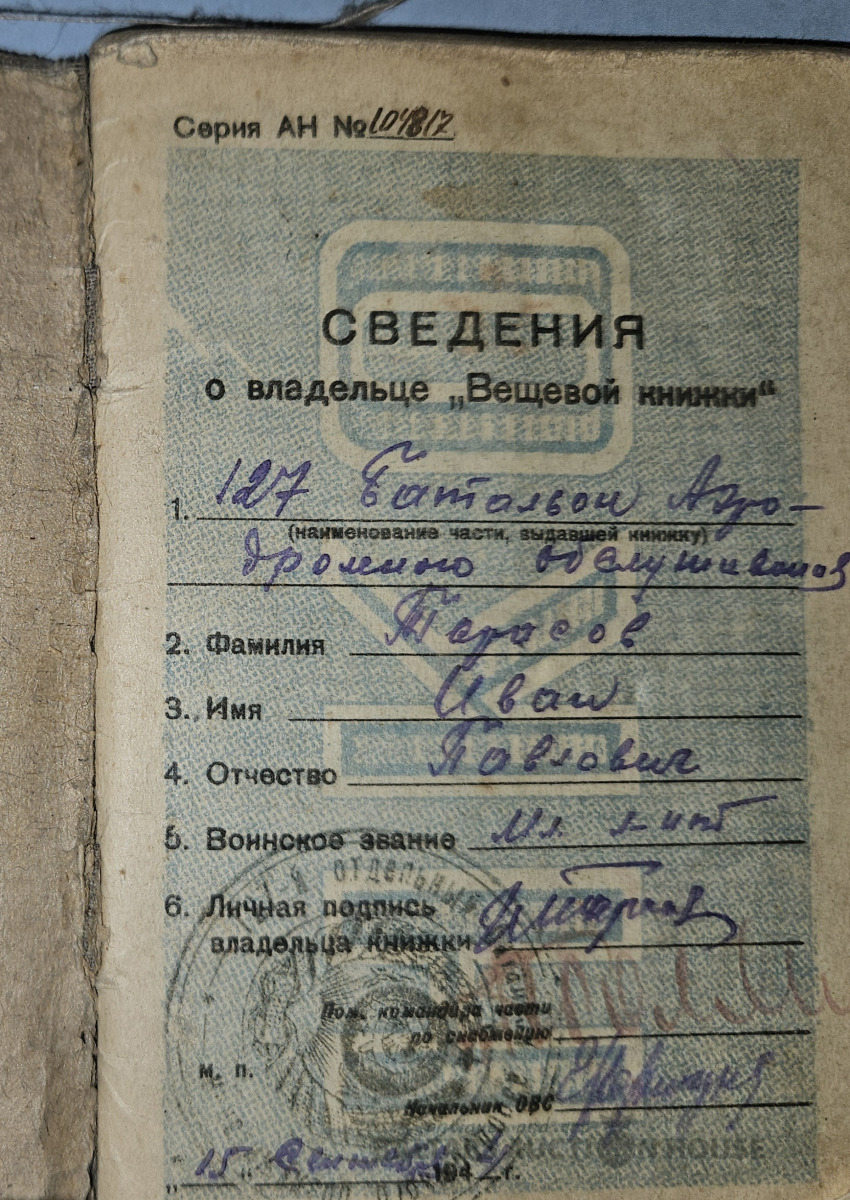 Серия АН № 104817
СВЕДЕНИЯ
о владельце „Вещевой книжки“
1. 127 Батальон Аэро-
(наименование части, выдавшей книжку)
дромного обслуживания
2. Фамилия Тарасов
3. Имя Иван
4. Отчество Павлович
5. Воинское звание Мл. л-нт
6. Личная подпись
владельца книжки
Пом. командира части
по снабжению
м. п.
Начальник ОВС
"15" Сентября 194 г.
ОТДЕЛЬНЫЙ
AUCTION HOUSE